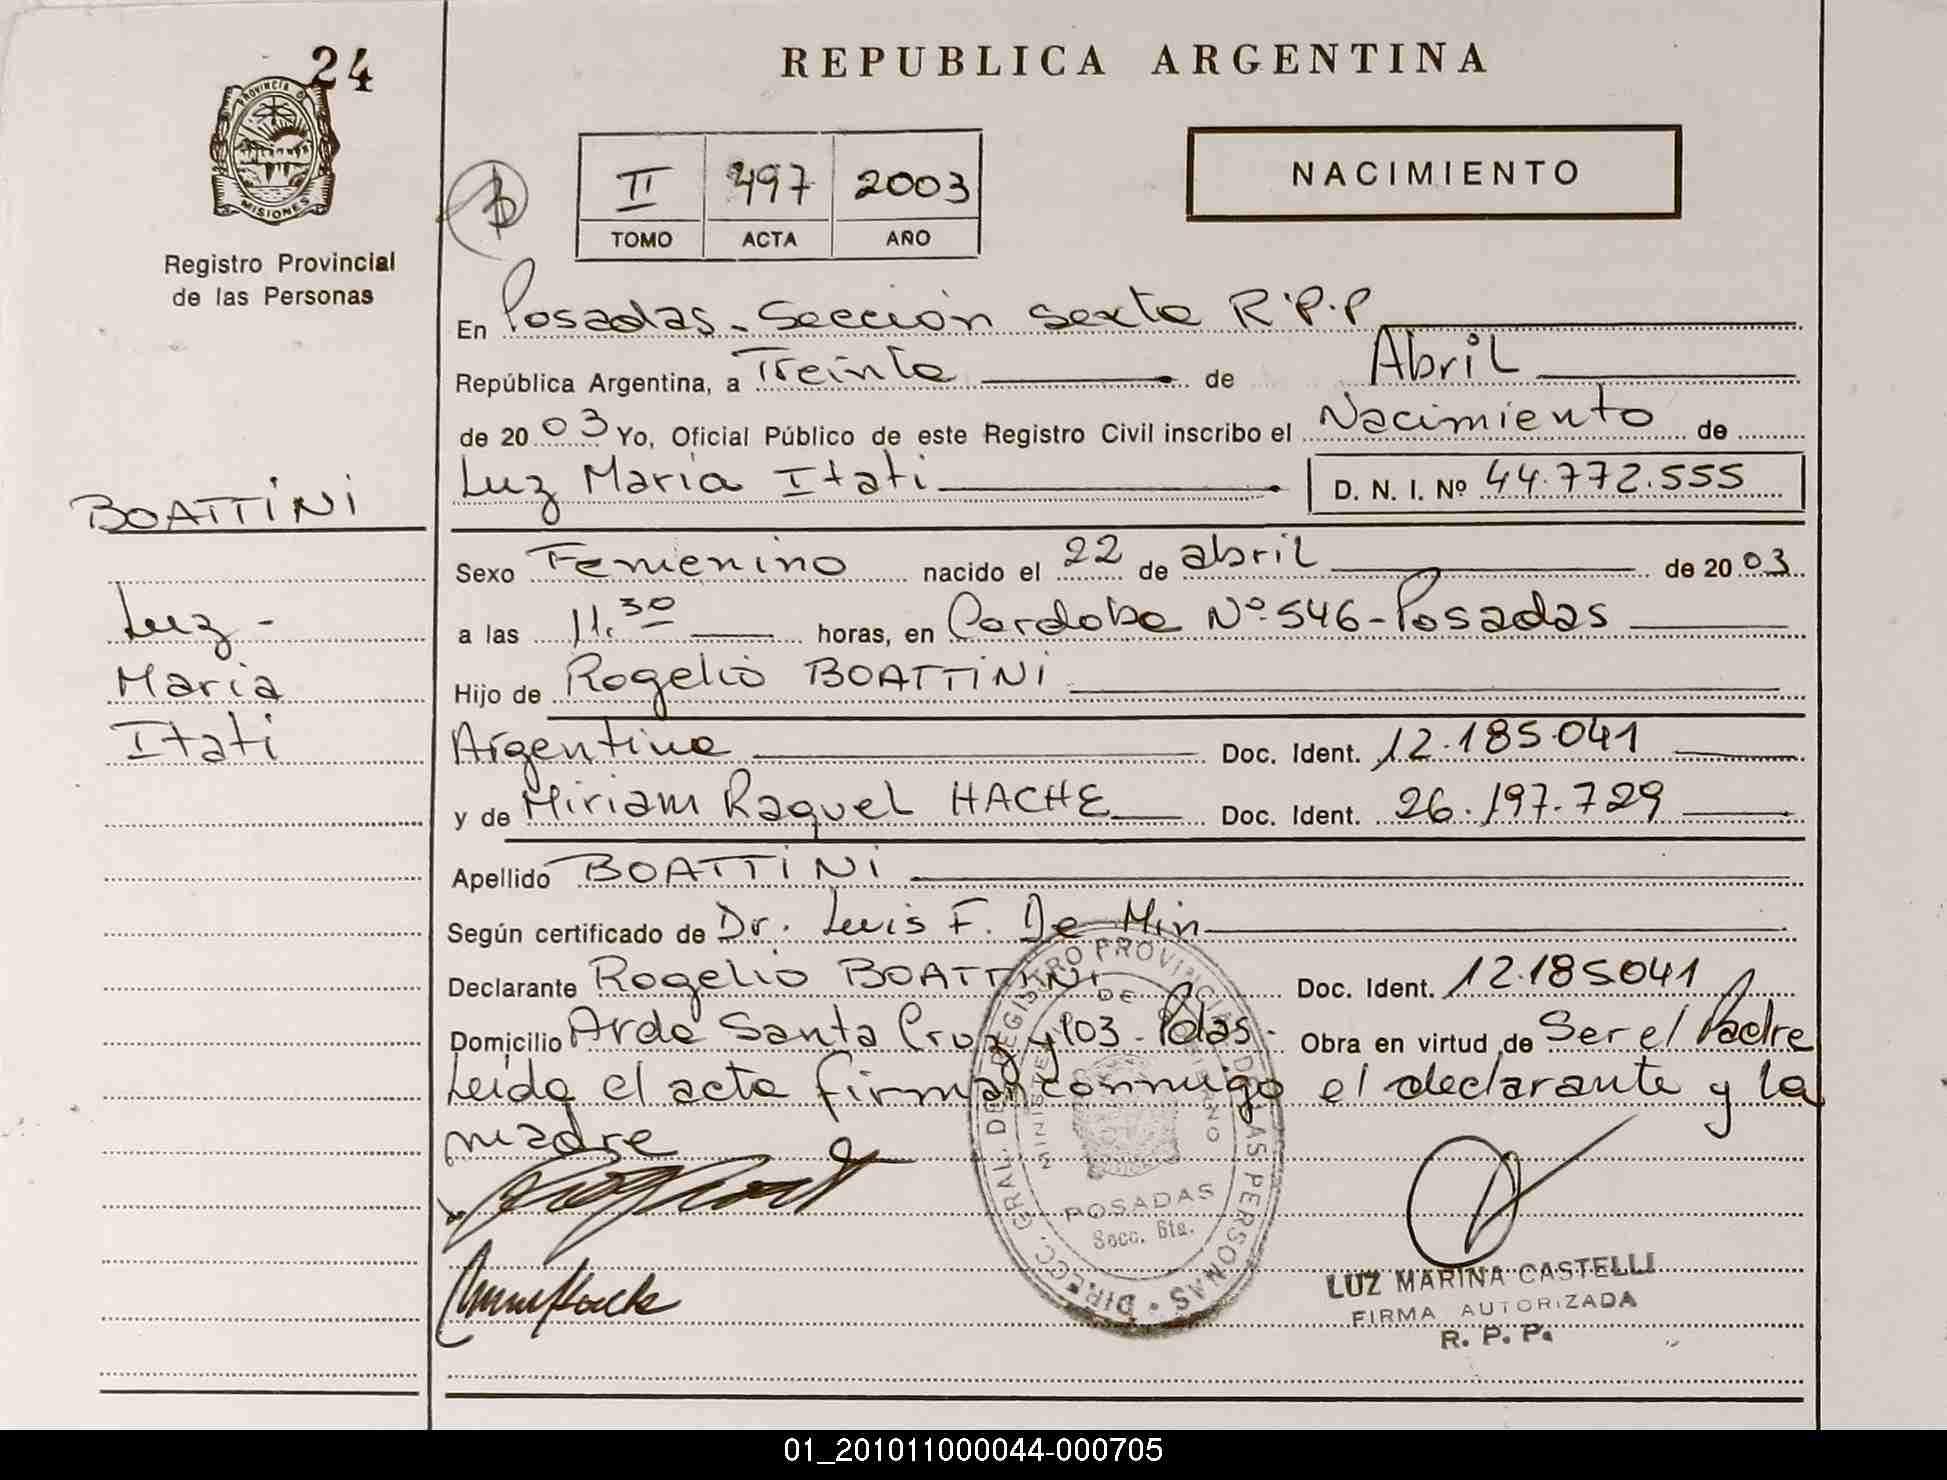 24
PROVINCIA D
MISIONES
Registro Provincial
de las Personas
REPUBLICA ARGENTINA
II 497 2003
TOMO ACTA AÑO
NACIMIENTO
En Posadas - Sección sexta R.P.P
República Argentina, a Treinta de Abril
de 2003 Yo, Oficial Público de este Registro Civil inscribo el Nacimiento de
Luz María Itati D. N. I. Nº 44.772.555
BOATTINI
Sexo Femenino nacido el 22 de abril de 2003
Luz -
a las 11.30 horas, en Cordoba Nº 546 - Posadas
Maria
Hijo de Rogelio BOATTINI
Itati
Argentino Doc. Ident. 12.185.041
y de Miriam Raquel HACHE Doc. Ident. 26.197.729
Apellido BOATTINI
Según certificado de Dr. Luis F. De Min
Declarante Rogelio BOATTINI Doc. Ident. 12.185041
Domicilio Avda Santa Cruz y 103 - Pdas - Obra en virtud de Ser el Padre
Leída el acta firman conmigo el declarante y la
madre
DIRECC. GRAL. DE REGISTRO PROVINCIAL DE LAS PERSONAS
MINISTERIO DE GOBIERNO
POSADAS
Secc. 6ta.
LUZ MARINA CASTELLI
FIRMA AUTORIZADA
R. P. P.
01_201011000044-000705